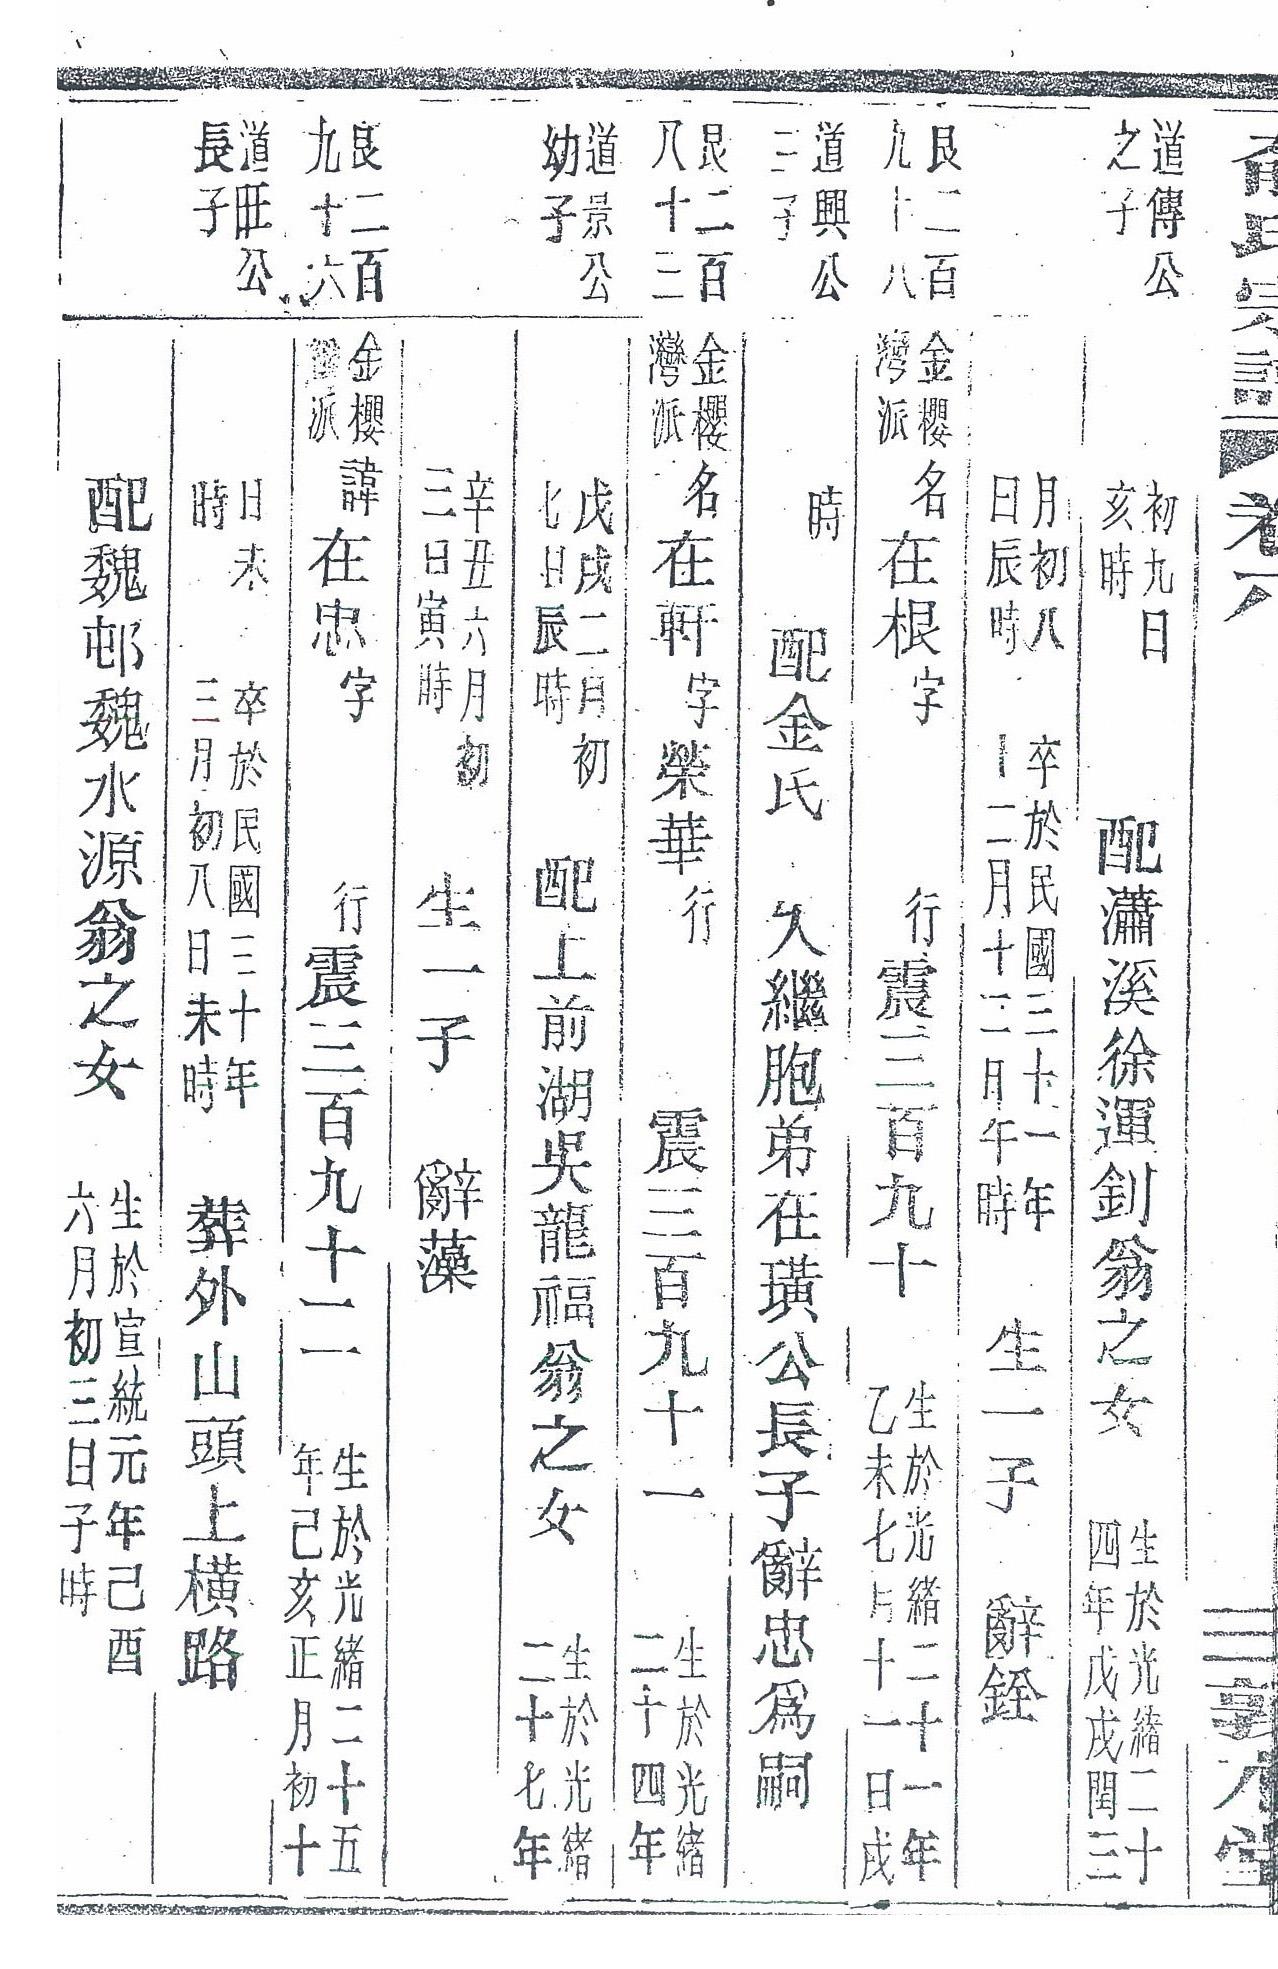 氏宗譜 卷六 三 敦木堂
道傳公
之子
初九日
亥時
配瀟溪徐運釗翁之女
生於光緒二十
四年戊戌閏三
月初八
日辰時
卒於民國三十一年
十二月十三日午時
生一子 辭銓
艮二百
九十八
金櫻
灣派
名在根字 行震三百九十
生於光緒二十一年
乙未七月十一日戌
道興公
三子
時
配金氏 入繼胞弟在璜公長子辭忠爲嗣
艮二百
八十三
金櫻
灣派
名在軒字榮華行 震三百九十一
生於光緒
二十四年
道景公
幼子
戊戌二月初
七日辰時
配上前湖吳龍福翁之女
生於光緒
二十七年
辛丑六月初
三日寅時
生一子 辭藻
艮二百
九十六
金櫻
灣派
諱在忠字 行震三百九十二
生於光緒二十五
年己亥正月初十
道旺公
長子
日未
時
卒於民國三十年
三月初八日未時
葬外山頭上橫路
配魏邨魏水源翁之女
生於宣統元年己酉
六月初三日子時